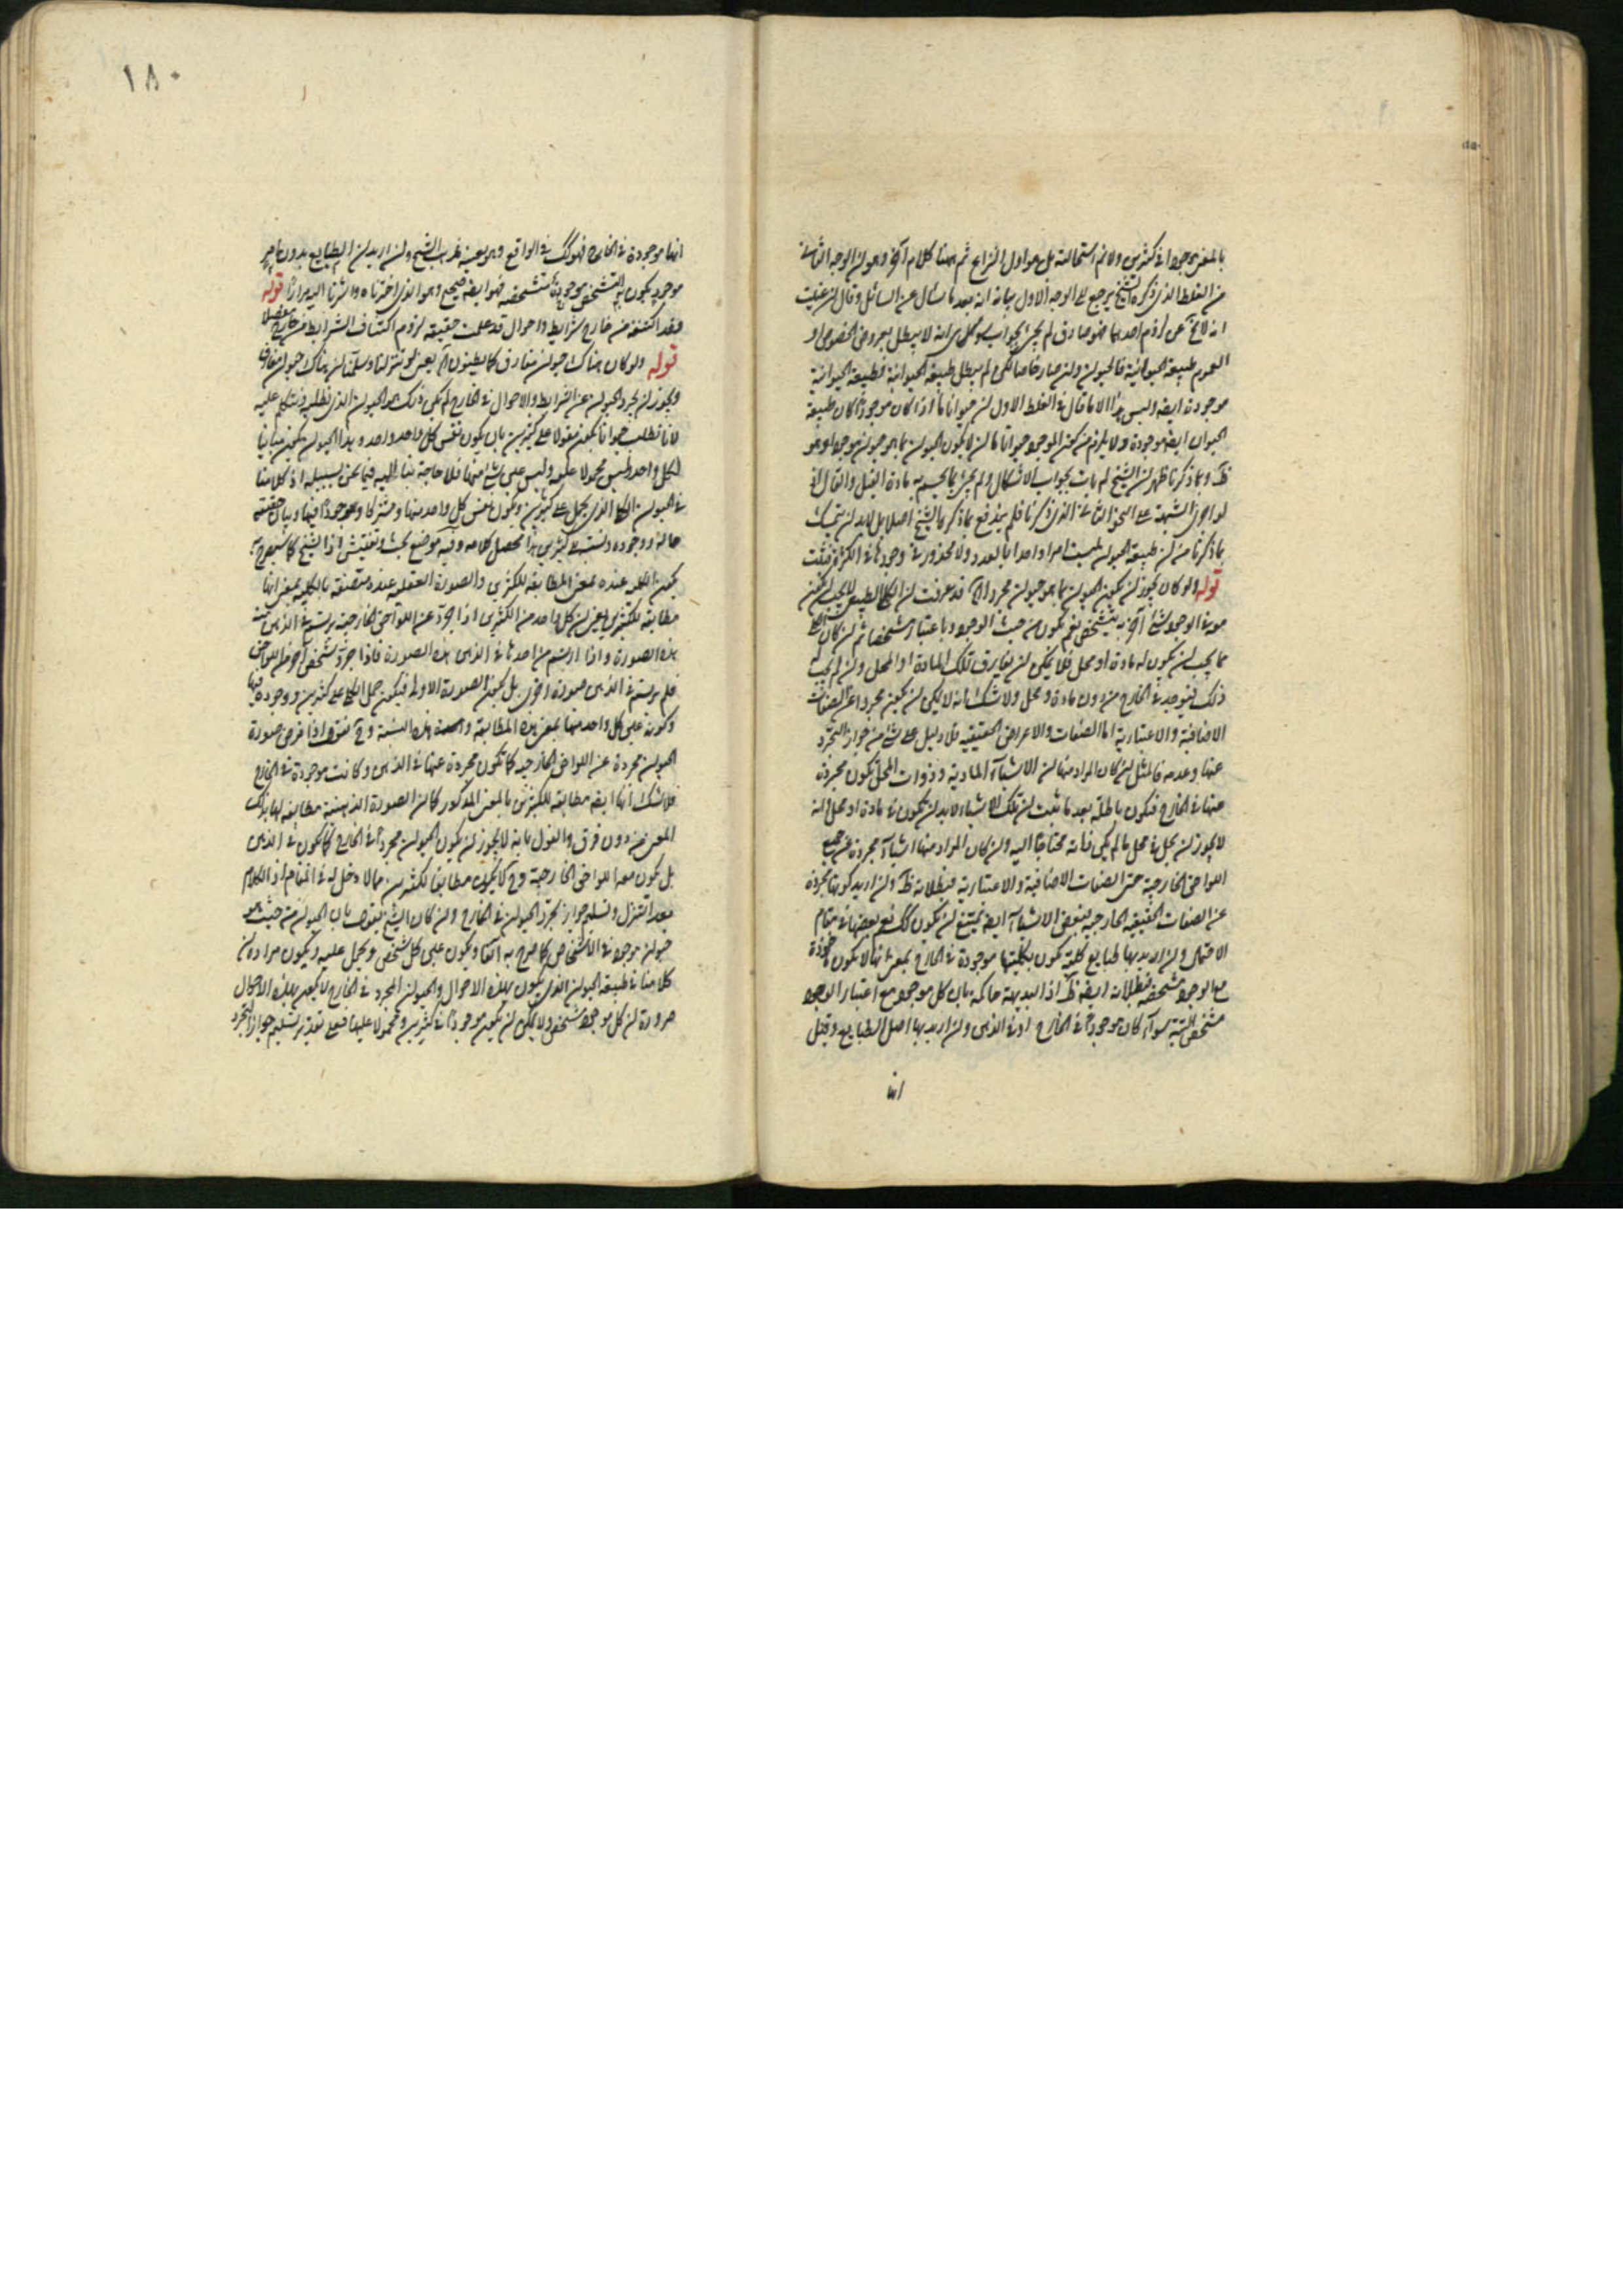 بالمعنى موجودا في كثيرين ولا نم استحالته بل هو اول النزاع ثم ههنا كلام آخر وهو ان الوجه الثاني
من الغلط الذي ذكره الشيخ يرجع الى الوجه الاول بيانه انه بعد ما سال عن السائل وقال ان عنيت
انه لا يخ عن لزوم احدهما فهو صادق لم يجئ بجواب وكل من انه لا يبطل بعروض الخصوص او
العموم طبيعة الحيوانية فالحيوان وان صار خاصا لكن لم يبطل طبيعة الحيوانية فطبيعة الحيوانية
موجودة ايضه وليس هذا الا ما قال في الغلط الاول ان حيوانا ما اذا كان موجودا كان طبيعة
الحيوان ايضه موجودة ولا يلزم من كون الموجود حيوانا ما ان لا يكون الحيوان بما هو حيوان موجودا وهو
ظ وبما ذكرنا ظهر ان الشيخ لم يات بجواب الاشكال ولم يجئ بما يحسم به مادة القيل والقال اذ
لو اجرى الشبهة على النحو الثاني الذي ذكرنا فلم يندفع بما ذكره الشيخ اصلا بل لا بد ان يتمسك
بما ذكرنا من ان طبيعة الحيوان ليست امرا واحدا بالعدد ولا محذور في وجودها في الكثرة فتثبت
قوله ولو كان يجوز ان يكون الحيوان بما هو حيوان مجردا آه قد عرفت ان الكلي الطبيعي
موجود في الوجود شئ آخر به يتشخص نعم يكون من حيث الوجود وباعتبار تشخصا ثم ان كان
مما يجب ان يكون له مادة او محل فلا يمكن ان يفارق تلك المادة او المحل وان لم يجب له
ذلك فيوجد في الخارج من دون مادة ومحل ولا شك انه لا يمكن ان يكون مجردا عن الصفات
الاضافية والاعتبارية اما الصفات والاعراض الحقيقية فلا دليل على شئ من جواز التجرد
عنها وعدمه فالمثل ان كان المراد منها ان الاشياء المادية وذوات المحل تكون مجردة
عنها في الخارج فتكون باطلة بعد ما ثبت ان تلك الاشياء لا بد ان تكون في مادة او محل وانه
لا يجوز ان يحل في محل ما لم يكن ذاته محتاجا اليه وان كان المراد منها اشياء مجردة عن جميع
اللواحق الخارجية حتى الصفات الاضافية والاعتبارية فبطلانه ظ وان اريد كونها مجردة
عن الصفات الحقيقية الخارجية فبعض الاشياء ايضه يمتنع ان يكون كك نعم بعضها في مقام
الاحتمال وان اريد بها طبايع كلية تكون بكليتها موجودة في الخارج بمعنى انها لا تكون
مع الوجود متشخصة فبطلانه ايضه ظ اذ البديهة حاكمة بان كل موجود مع اعتبار الوجود
متشخص البتة سواء كان موجودا في الخارج او في الذهن وان اريد بها اصل الطبايع وقيل
انها
١٨٠
انها موجودة في الخارج فهو كك في الواقع وهو بعينه مذهب الشيخ وان اريد ان الطبايع بدون
موجود يكون به التشخص موجودة متشخصة فهو ايضه صحيح وهو الذي اخترناه واشرنا اليه مرارا قوله
فقد اكتنفه من خارج شرايط واحوال قد علمت حقيقة لزوم اكتناف الشرايط من خارج مفصلا
قوله ولو كان هناك حيوان مفارق كما يظنون آه يعني لو تنزلنا وسلمنا ان هناك حيوان مفارق
ويجوز ان يجرد الحيوان عن الشرايط والاحوال في الخارج لم يكن ذلك هو الحيوان الذي نطلبه ونتكلم عليه
لانا نطلب حيوانا يكون مقولا على كثيرين بان يكون نفس كل واحد واحد وهذا الحيوان يكون مباينا
لكل واحد وليس محمولا عليه وليس على شئ منها فلا حاجة بنا اليه فيما نحن بسبيله اذ كلامنا
في الحيوان الكلي الذي يحمل على كثيرين ويكون نفس كل واحد منها ومشتركا وموجودا فيها وبيان حقيقته
حاله ووجوده ونسبته الى كثيرين هذا محصل كلامه وفيه موضع بحث وتفتيش اذ الشيخ كما سيصرح به
يكون الكلي عنده بمعنى المطابقة للكثيرين والصورة العقلية عنده متصفة بالكلية بمعنى انها
مطابقة لكثيرين يعني ان كل واحد من الكثيرين اذا جرد عن اللواحق الخارجية يرتسم في الذهن منه
هذه الصورة واذا ارتسم من احدها في الذهن هذه الصورة فاذا جرد شخص آخر من اللواحق
فلم يرتسم في الذهن صورة اخرى بل يكون الصورة الاولى فيكون حمل الكلي على كثيرين ووجوده فيها
وكونه على كل واحد منها بمعنى هذه المطابقة والصحة هذه النسبة وح نقول اذا فرض صورة
الحيوان مجردة عن اللواحق الخارجية كما تكون مجردة عنها في الذهن وكانت موجودة في الخارج
فلا شك انها ايضه مطابقة للكثيرين بالمعنى المذكور كما ان الصورة الذهنية مطابقة لها بذلك
المعنى من دون فرق والقول بانه لا يجوز ان يكون الحيوان مجردا في الخارج كما يكون في الذهن
بل يكون معه اللواحق الخارجية وح لا يكون مطابقا لكثيرين مما لا دخل له في المقام اذ الكلام
بعد التنزل وتسليم جواز تجرد الحيوان في الخارج وان كان الشيخ يقول بان الحيوان من حيث هو
حيوان موجود في الاشخاص كما صرح به آنفا ويكون على كل شخص ويحمل عليه ويكون مراده ان
كلامنا في طبيعة الحيوان الذي يكون بهذه الاحوال والحيوان المجرد في الخارج لا يكون بهذه الاحوال
ضرورة ان كل موجود متشخص ولا يمكن ان يكون موجودا في كثيرين ومحمولا عليها فعلى تقدير تسليم جواز التجرد